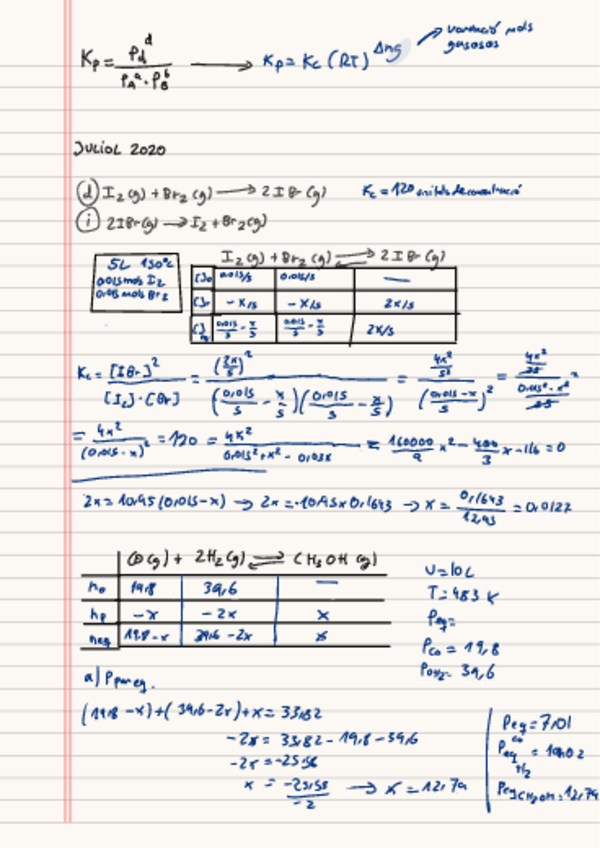 Kp = Pd^d / PA^a · PB^b ⟶ Kp = Kc (RT)^Δng → variació mols gasosos
JULIOL 2020
(d) I2(g) + Br2(g) ⟶ 2IBr(g) Kc = 120 unitats de concentració
(i) 2IBr(g) ⟶ I2 + Br2(g)
5L 150ºC
0,015 mols I2
0,015 mols Br2
I2(g) + Br2(g) ⇌ 2IBr(g)
[]o 0,015/5 0,015/5 —
[]r -x/5 -x/5 2x/5
[]eq 0,015/5 - x/5 0,015/5 - x/5 2x/5
Kc = [IBr]^2 / [I2]·[Br] = (2x/5)^2 / (0,015/5 - x/5)(0,015/5 - x/5) = 4x^2/5^2 / (0,015-x/5)^2 = 4x^2/25 / 0,015^2-x^2/25 =
= 4x^2 / (0,015-x)^2 = 120 = 4x^2 / 0,015^2+x^2-0,03x
2x = 10,95(0,015-x) → 2x = -10,95x 0,1643 → x = 0,1643/12,95 = 0,0127
CO(g) + 2H2(g) ⇌ CH3OH(g)
no 19,8 39,6 —
nr -x -2x x
neq 19,8-x 39,6-2x x
V=10L
T=483 K
Peq=
Pco = 19,8
39,6
a) P
(19,8-x)+(39,6-2x)+x = 33,82
-2x = 33,82-19,8-39,6
-2x = -25,58
x = -25,58/-2 → x = 12,79
Peq co = 7,01
Peq H2 = 14,02
Peq CH3OH = 12,79